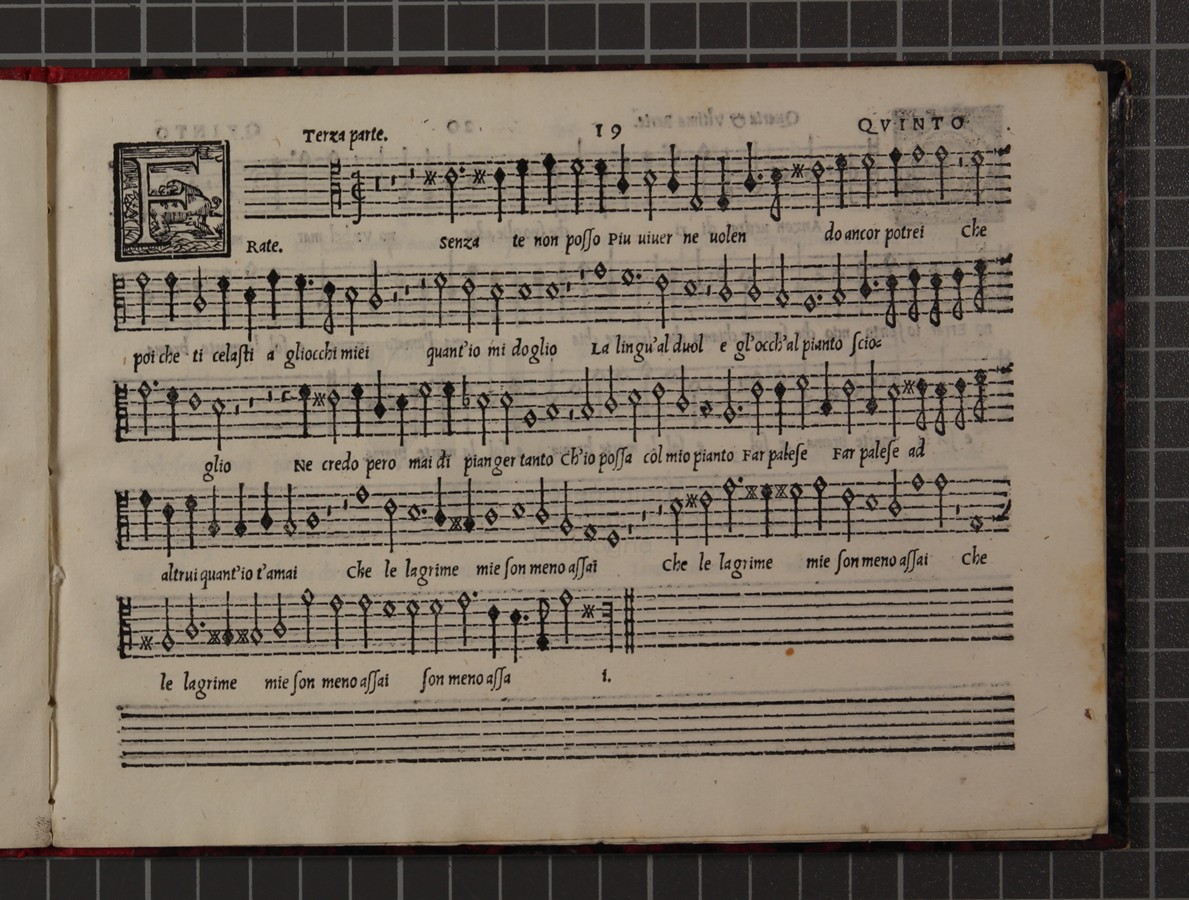 Terza parte. 19 QVINTO
F
Rate. Senza te non posso Piu uiuer ne uolen do ancor potrei Che
poi che ti celasti a gliocchi miei quant'io mi doglio La lingu'al duol e gl'occh'al pianto scio-
glio Ne credo pero mai di pianger tanto Ch'io possa col mio pianto Far palese Far palese ad
altrui quant'io t'amai Che le lagrime mie son meno assai Che le lagrime mie son meno assai Che
le lagrime mie son meno assai son meno assa i.